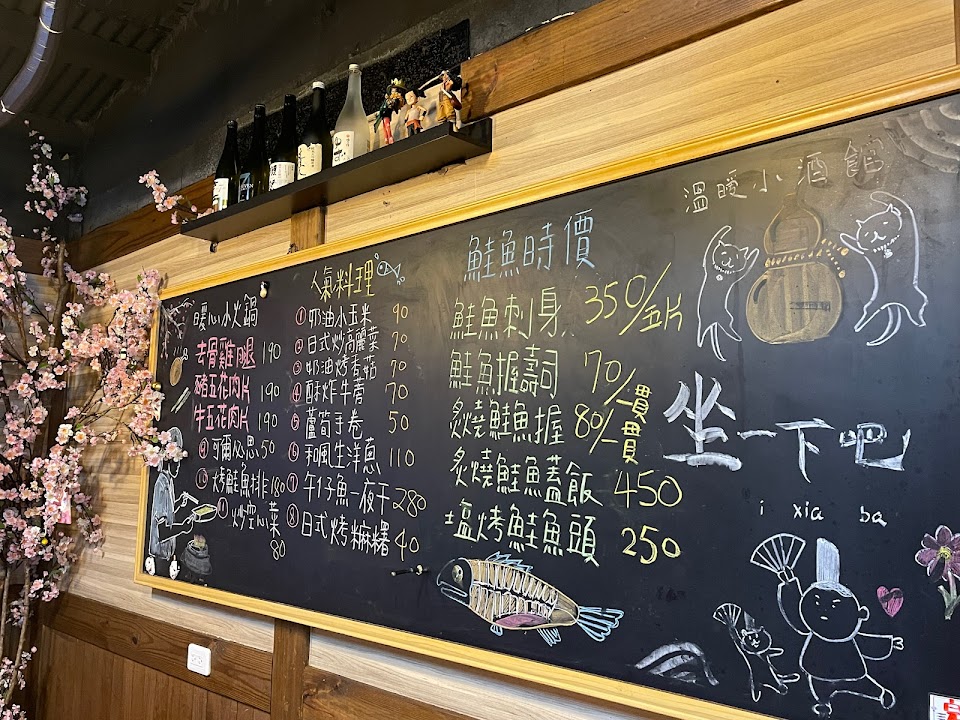 暖心小火鍋
去骨雞腿 190
豬五花肉片 190
牛五花肉片 190
⑨ 可爾必思 50
⑩ 烤鮭魚排 180
⑪ 炒空心菜
80
人氣料理
① 奶油小玉米 90
② 日式炒高麗菜 70
③ 奶油烤香菇 70
④ 酥炸牛蒡 70
⑤ 蘆筍手卷 50
⑥ 和風生洋蔥 110
⑦ 午仔魚一夜干 280
⑧ 日式烤麻糬 40
鮭魚時價
鮭魚刺身 350/五片
鮭魚握壽司 70/一貫
炙燒鮭魚握 80/一貫
炙燒鮭魚蓋飯 450
塩烤鮭魚頭 250
溫暖小酒館
坐一下吧
i xia ba